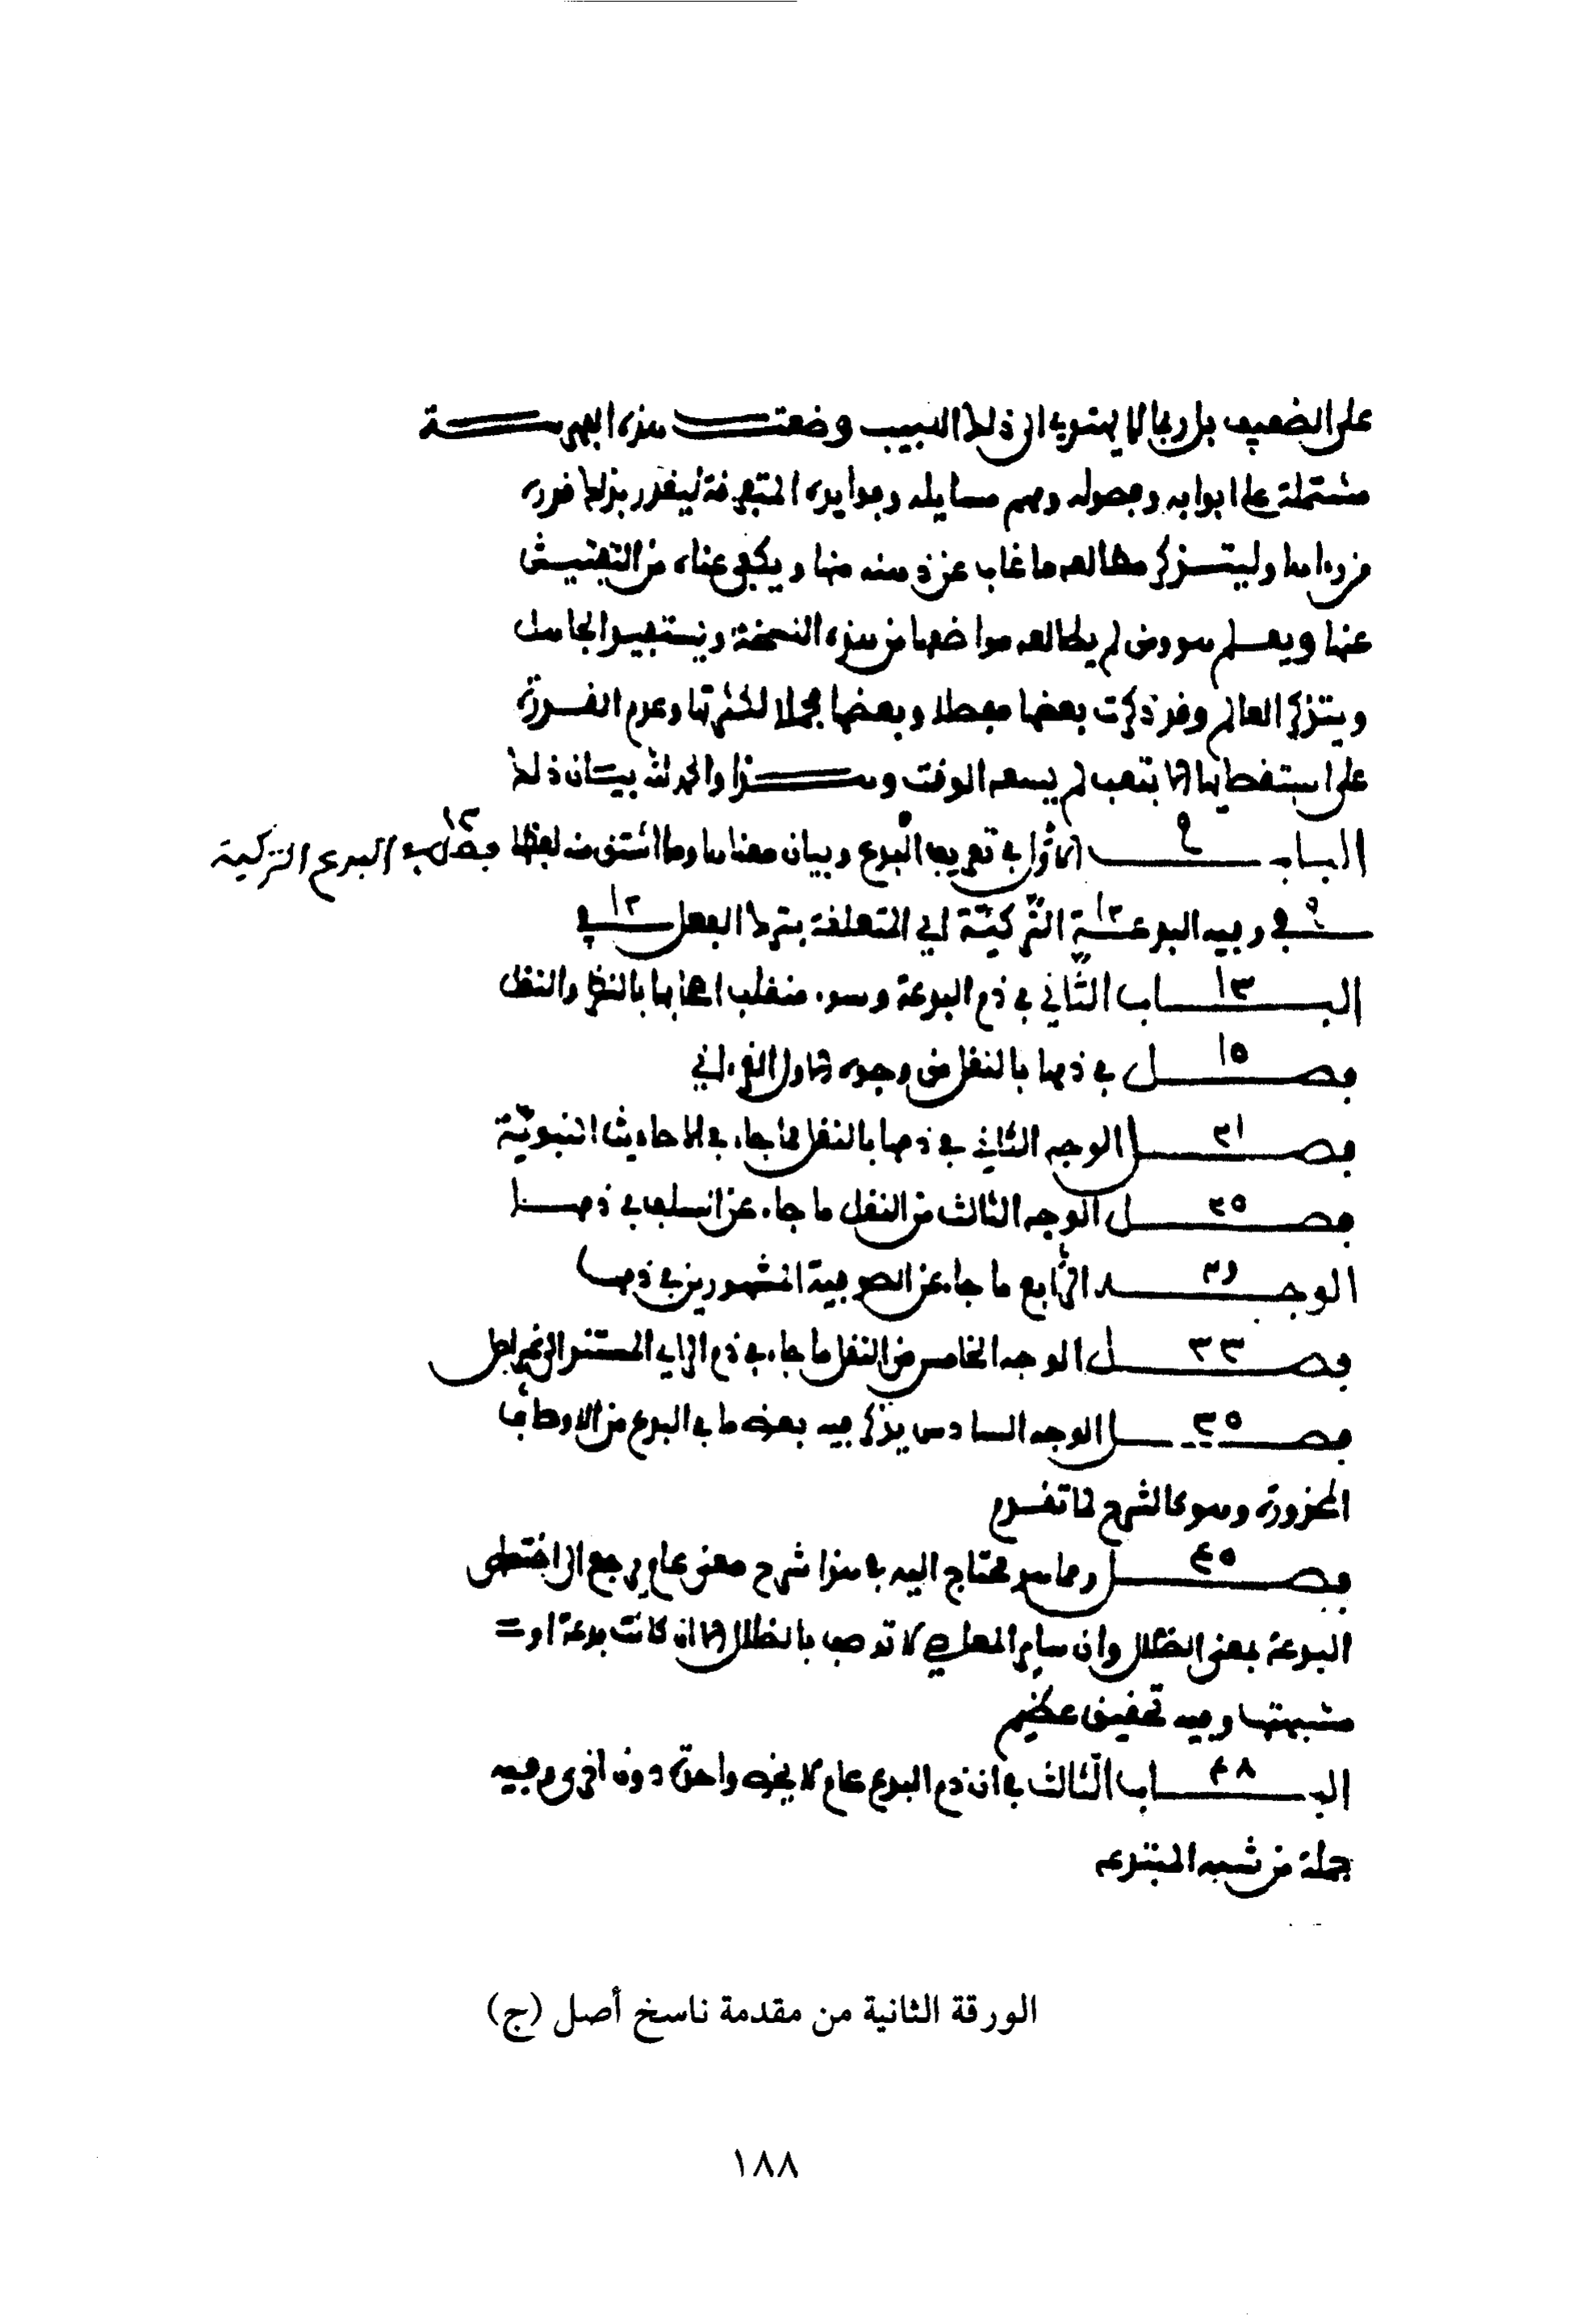 على الضعيف بل ربما لا يهتدي الى ذلك اللبيب وضعت هذه الفهرسة
مشتملة على ابوابه وفصوله ومهم مسايله وفوايده المتفرقة ليقرر بذلك
وليتذكر مطالعه ما غاب عن ذهنه منها ويكفى عناء من التفتيش
عنها ويعلم هو ومن لم يطالعه مواضعها من هذه النسخة ويستفيد الجاهل
ويتذكر العالم وقد ذكرت بعضها مفصلا وبعضها مجملا لكثرتها وعدم القدرة
على استقصايها الا بتعب لم يسعه الوقت وهذا والحمد لله بيان ذلك
البــاب ٩ الاول في تعريف البدع وبيان معناها وما اشتق منه لفظها ١٢ البدع التركية
٩ في وفيه البدعــة ١٢ التركية اي المتعلقة بترك الفعل ١٢ في
البــاب ١٣ الثاني في ذم البدعة وسوء منقلب اصحابها بالنظر والنقل
فصــل ١٥ في ذمها بالنقل من وجوه الاول القرءاني
فصــل ٢١ الوجه الثاني في ذمها بالنقل مما جاء في الاحاديث النبوية
فصــل ٢٥ الوجه الثالث من النقل ما جاء عن السلف في ذمهــا
الوجــه الرابع ما جاء عن الصوفية المشهورين في ذمها
فصــل ٣٣ الوجه الخامس من النقل ما جاء في ذم الراي المستند الى غير اصل
فصــل ٣٥ الوجه السادس يذكر فيه بعض ما في البدع من الاوصاف
المحذورة وهو كالشرح لما تقدم
فصــل ٤٥ ومما هو محتاج اليه في هذا شرح معنى عام يرجع الى اختصاص
البدعة بمعنى الضلال وان ساير المعاصي لا توصف بالضلال الا ان كانت بدعة او
شبهتها وفيه تحقيق عظيم
البــاب ٤٨ الثالث في ان ذم البدع عام لا يخص واحدة دون اخرى وفيه
جملة من شبه المبتدعه
الورقة الثانية من مقدمة ناسخ أصل (ج)
١٨٨